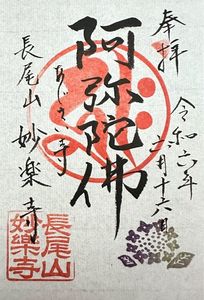 奉拝
令和六年
六月十六日
阿弥陀佛
あじさい寺
長尾山
妙楽寺
長尾山
妙楽寺